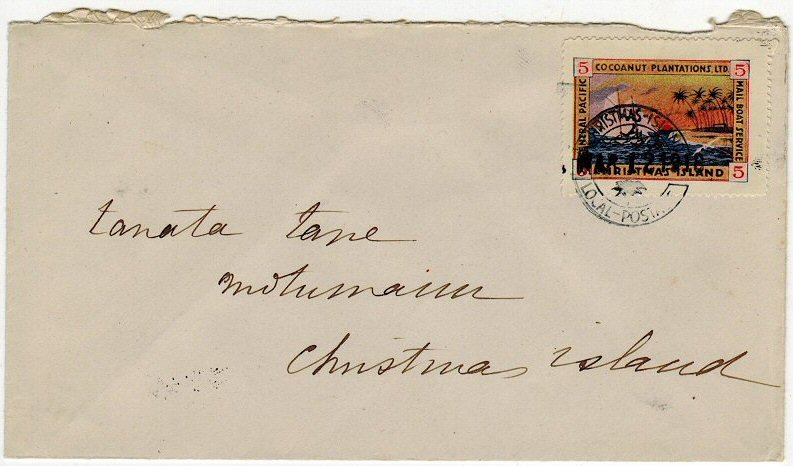 COCOANUT PLANTATIONS, LTD
5 5
CENTRAL PACIFIC
MAIL BOAT SERVICE
CHRISTMAS ISLAND
5 5
CHRISTMAS-ISLAND
MAR 12 1918
LOCAL-POST
tanata tane
motumaiin
Christmas Island